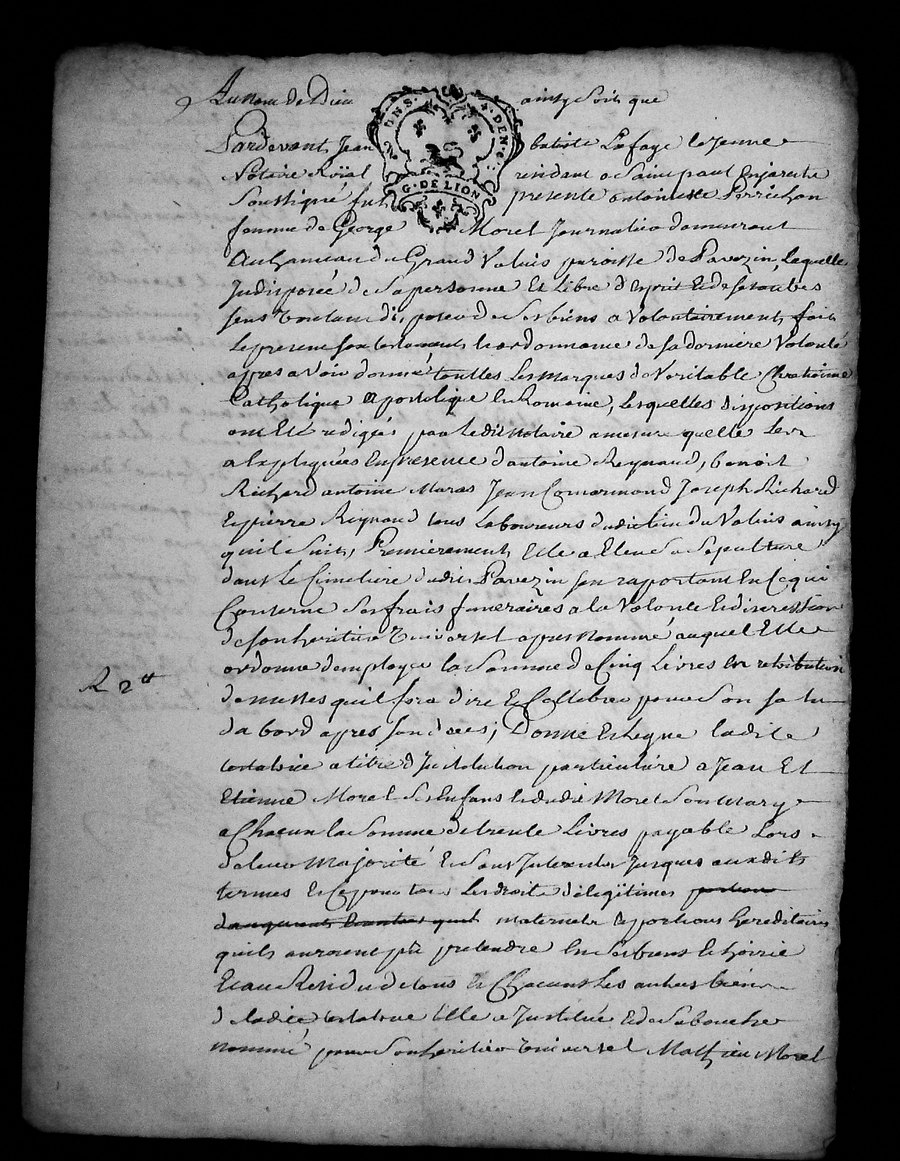 Au Nom de Dieu ainsy soit que
Pardevant Jean baptiste Lafaye le Jeune
Notaire Roïal residant a Saint paul En jareste
Soussigné fut presente antoinette Perrichon
femme de George Morel Journalier demeurant
Au hameau du Grand Valuis paroisse de Pavezin, Laquelle
Indisposée de sa personne Et Libre d'Esprit Et de ses
sens Voulant disposer de ses biens a Volontairement fait
Le present son testament Et ordonnance de sa derniere Volonté
apres avoir donné touttes Les marques de Veritable Chretienne
Catholique apostolique Et Romaine, Lesquelles dispositions
ont Eté redigées par Ledit Notaire a mesure quelle Les
a Expliquées En presence d'antoine Reynaud, benoit
Richard antoine Maras Jean Comarmond Joseph Richard
Et pierre Reynaud tous Laboureurs dudit lieu du Valuis ainsy
quil Suit, Premierement Elle a Eleu Sa Sepulture
dans Le Cimetiere dudit Pavezin s'en raportant En Ce qui
Concerne Ses frais funeraires a la Volonté Et discression
de son heritier Universel apres Nommé auquel Elle
ordonne d'employer la Somme de Cinq Livres En retribution
de messes quil fera dire Et Cellebrer pour Son salu
d'abord apres son deces, Donne Et Legue ladite
testatrice a titre d'Institution particuliere a Jean Et
Etienne Morel Ses Enfans Et dudit Morel Son Mary
a Chacun la Somme de trente Livres payable Lors
de leur Majorité Et Sans Interets Jusques auxdits
termes Et Ce pour tous Les droits de legitimes portions
maternels Et portions hereditaires
quils auroient pû pretendre En Ses biens Et hoirie
Et au Residu de tous Et Chacuns Les autres biens
de ladite testatrice Elle a Institué Et de Sa bouche
nommé pour Son heritier Universel Mathieu Morel
R 2tt
G. DE LION